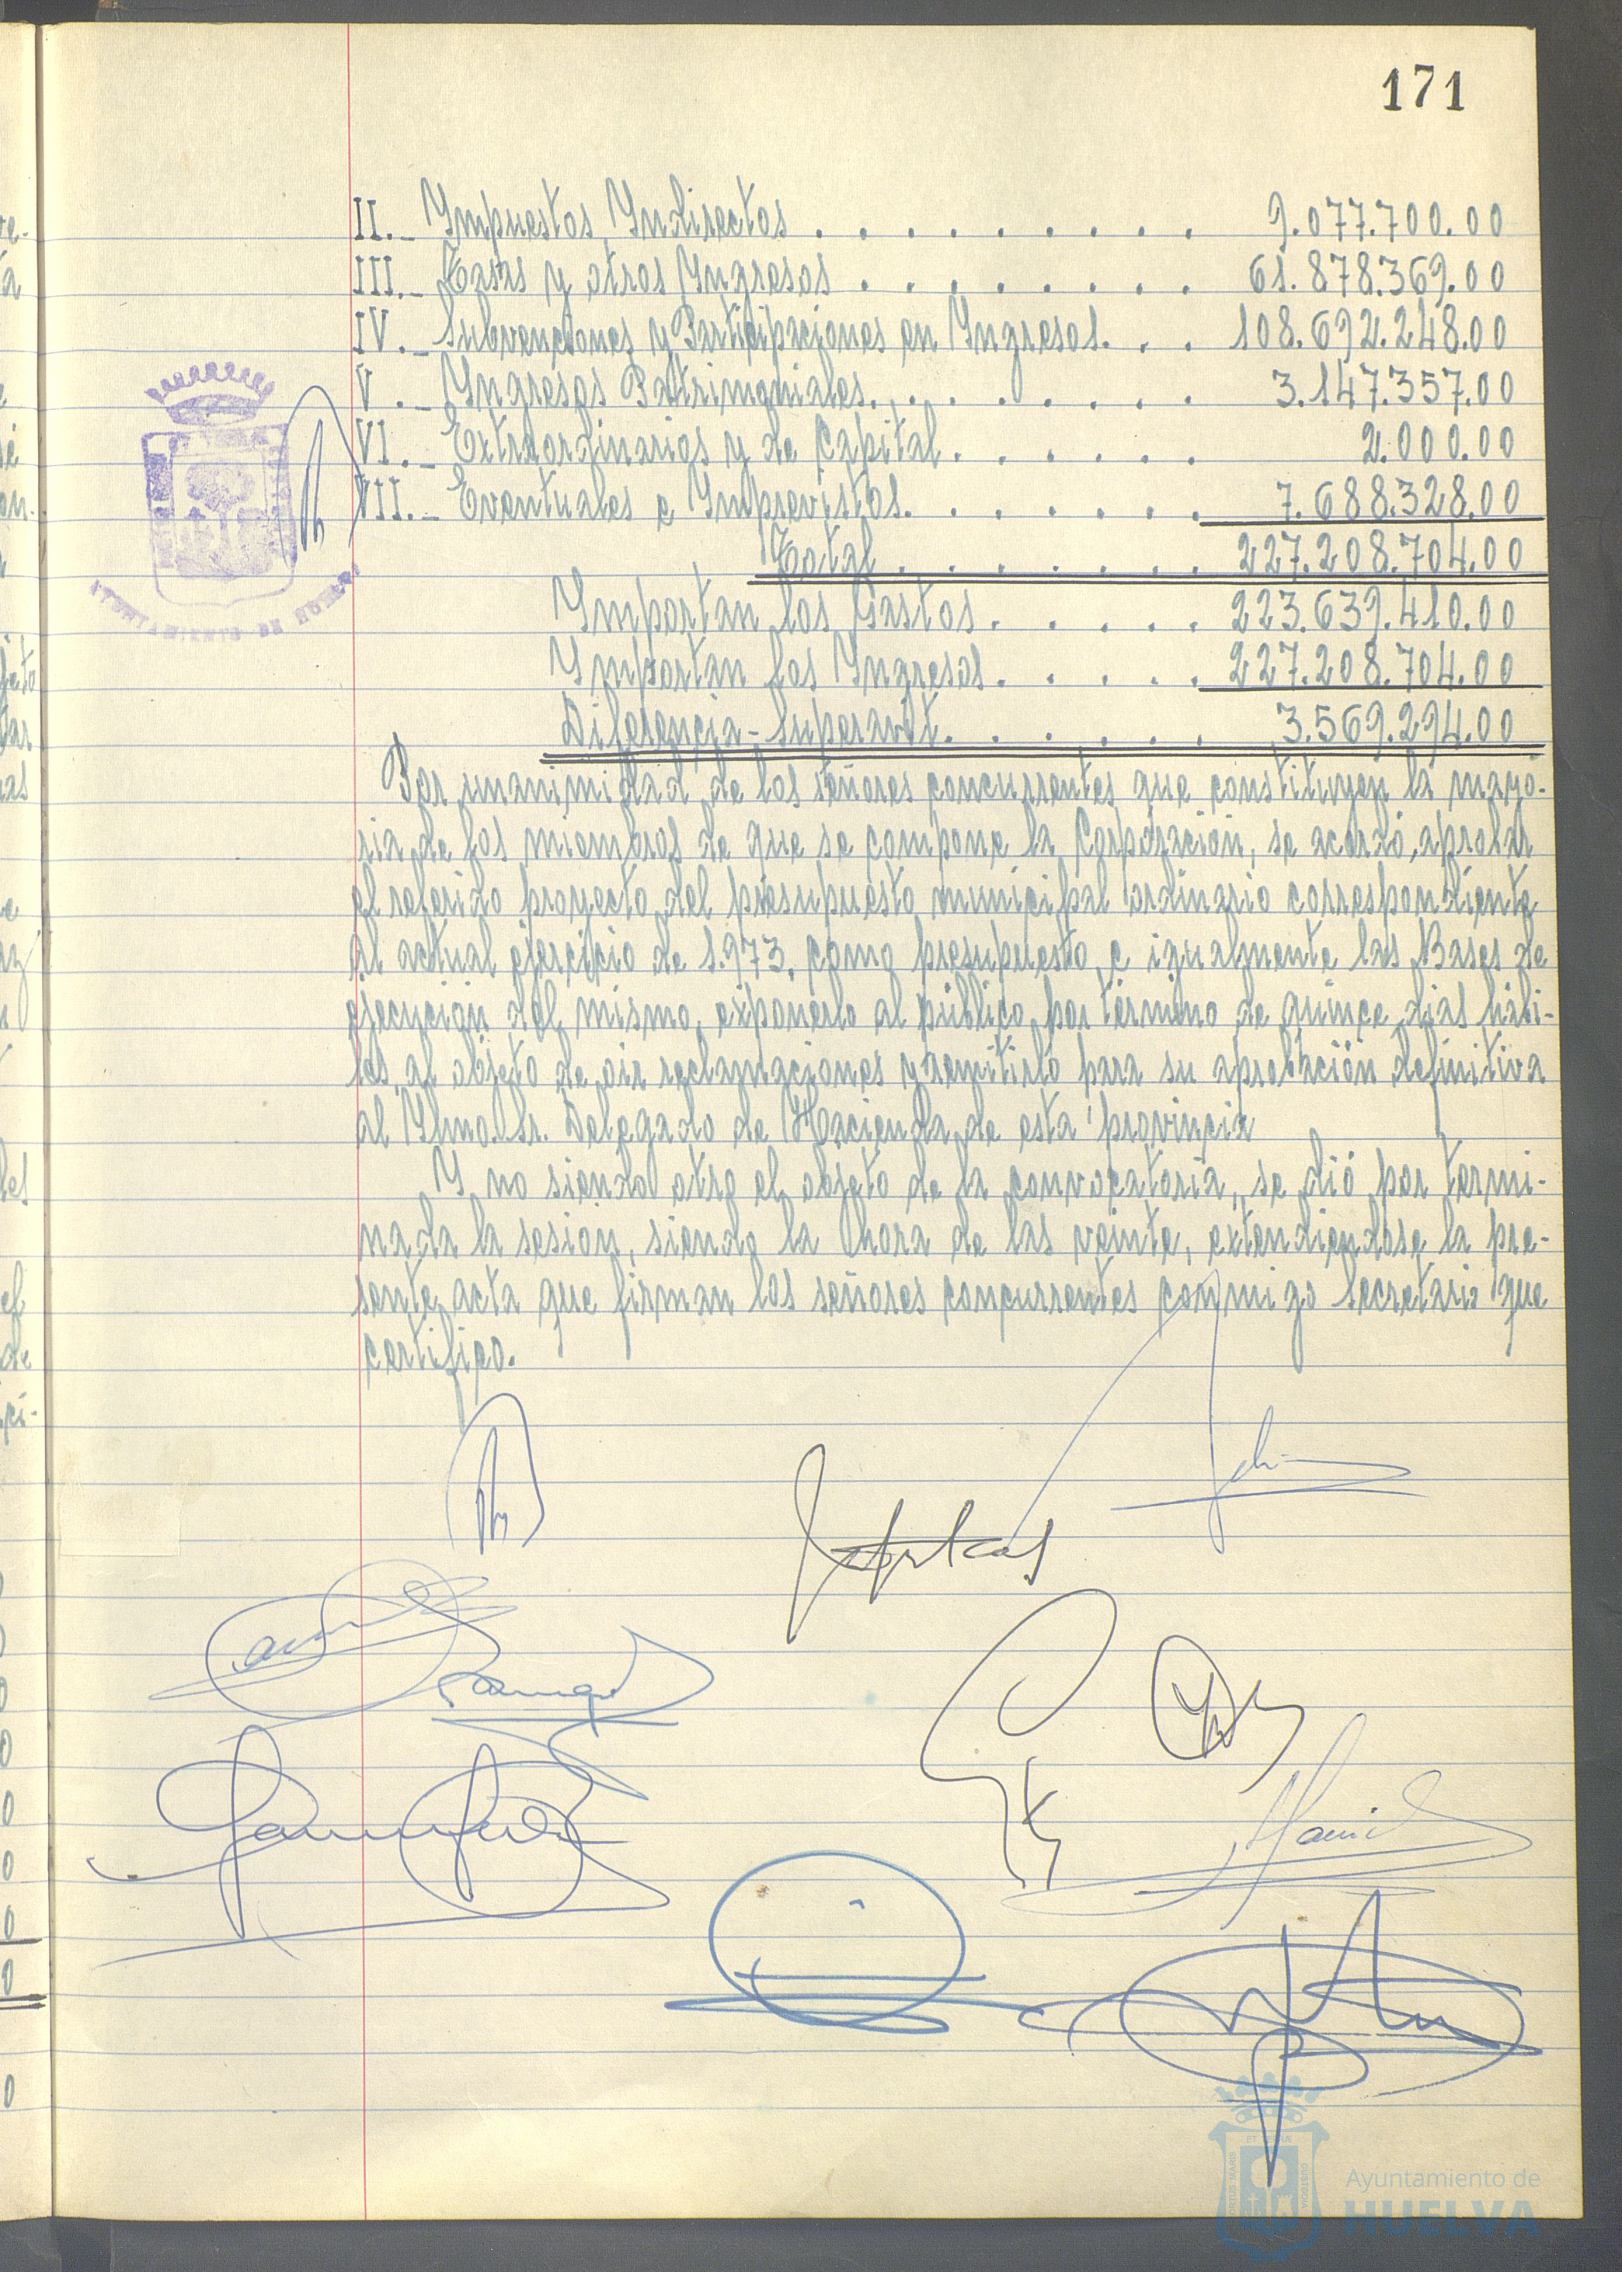 171
II.- Ympuestos Yndirectos . . . . . . . . . 9.077.700.00
III.- Tasas y otros Yngresos . . . . . . . . 61.878.369.00
IV.- Subvenciones y Participaciones en Yngresos. . . 108.692.248.00
V.- Yngresos Patrimoniales. . . . . . . . 3.147.357.00
VI.- Extraordinarios y de Capital. . . . . . 2.000.00
VII.- Eventuales e Ymprevistos. . . . . . . 7.688.328.00
Total . . . . . . . 227.208.704.00
Ymportan los Gastos . . . . . 223.639.410.00
Ymportan los Yngresos. . . . . 227.208.704.00
Diferencia-Superavit. . . . . . . 3.569.294.00
AYUNTAMIENTO DE HUELVA
Por unanimidad de los señores concurrentes que constituyen la mayo-
ria de los miembros de que se compone la Corporación, se acordó, aprobar
el referido proyecto del presupuesto municipal ordinario correspondiente
al actual ejercicio de 1.973, como presupuesto, e igualmente las Bases de
ejecución del mismo, exponerlo al público por término de quince dias hábi-
les, al objeto de oir reclamaciones y remitirlo para su aprobación definitiva
al Ylmo. Sr. Delegado de Hacienda de esta provincia
Y no siendo otro el objeto de la convocatoria, se dió por termi-
nada la sesión, siendo la hora de las veinte, extendiendose la pre-
sente acta que firman los señores concurrentes conmigo Secretario que
certifico.
Ayuntamiento de
HUELVA